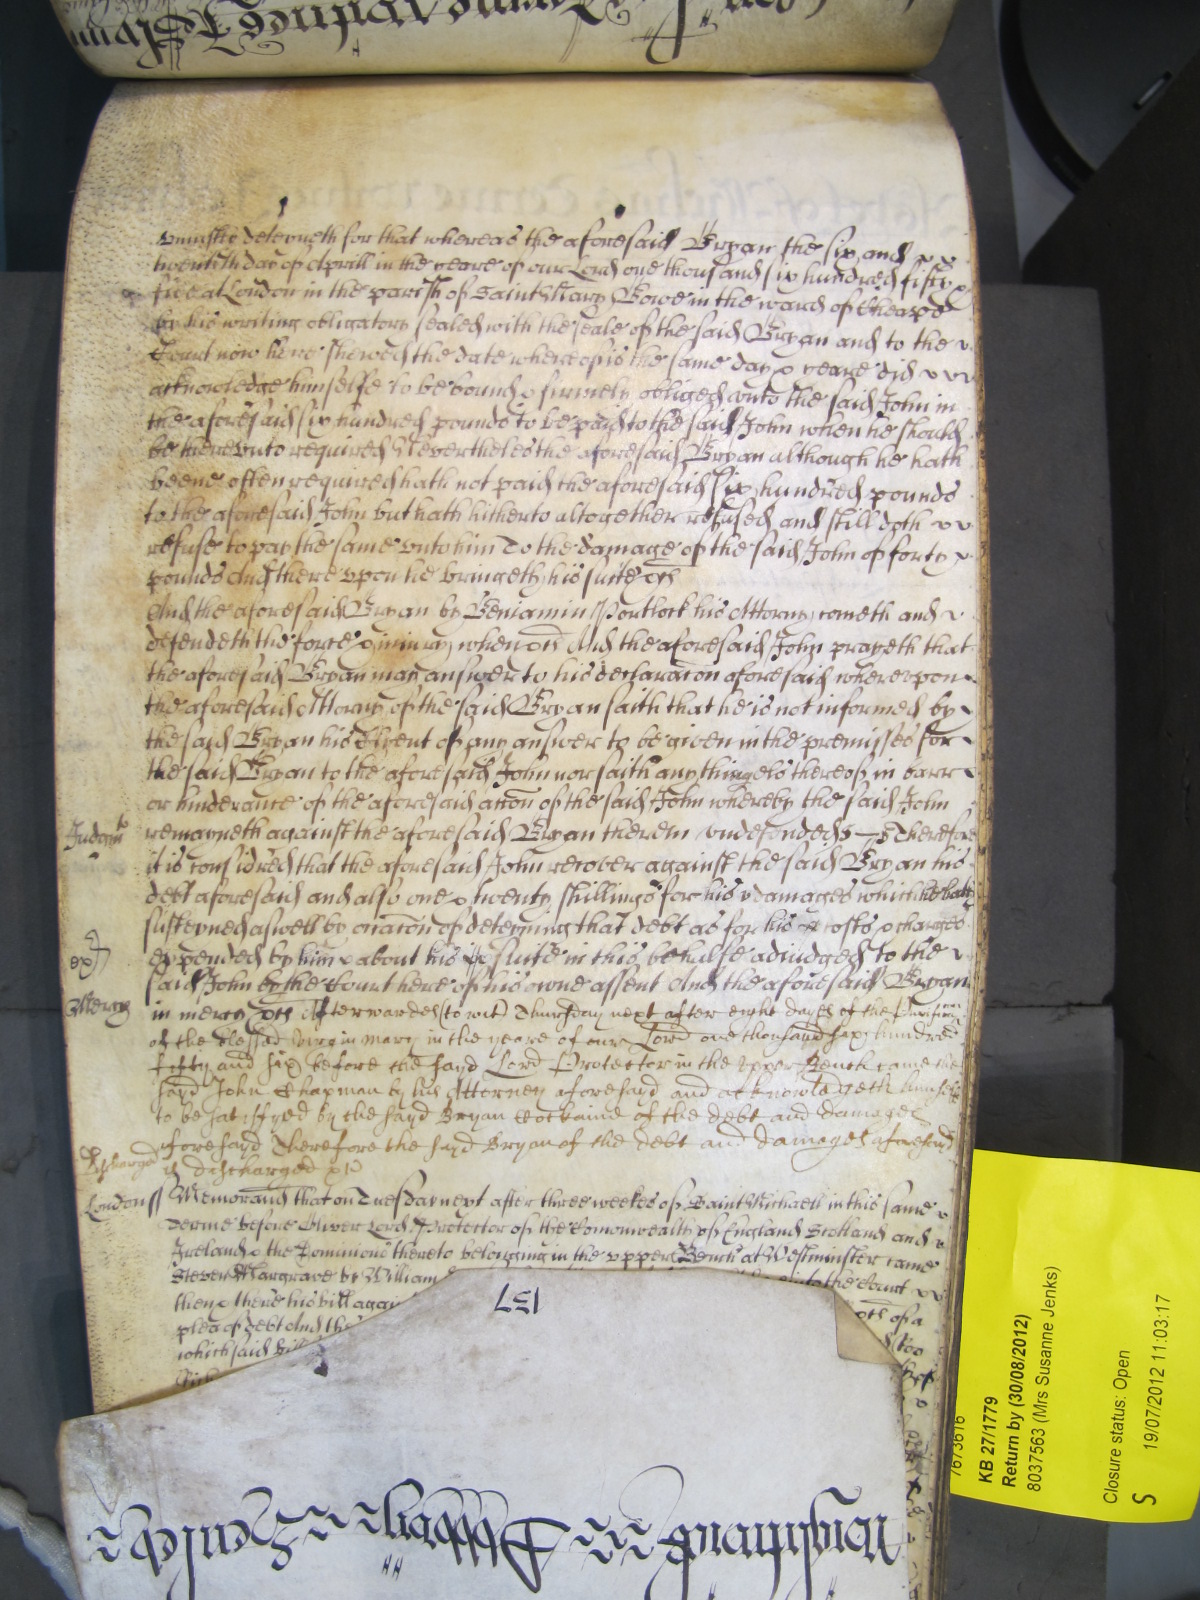 uniustly deteyneth for that whereas the aforesaid Bryan the six and
twentith day of Aprill in the yeare of our Lord one thousand six hundred fifty
five at London in the parish of Saint Mary Bowe in the ward of Cheape
by his writing obligatory sealed with the seale of the said Bryan and to the
Court now here shewed the date whereof is the same day & yeare did
acknowledge himselfe to be bound & firmely obliged unto the said John in
the aforesaid six hundred pounds to be paid to the said John when he should
be thereunto required Neverthelesse the aforesaid Bryan although he hath
beene often required hath not paid the aforesaid six hundred pounds
to the aforesaid John but hath hitherto altogether refused and still doth
refuse to pay the same unto him To the damage of the said John of forty
pounds And thereupon he bringeth his suite &c
And the aforesaid Bryan by Beniamin Portlock his Attorny cometh and
defendeth the force & iniury when &c And the aforesaid John prayeth that
the aforesaid Bryan may answer to his declaracon aforesaid whereupon
the aforesaid Attorny of the said Bryan saith that he is not informed by
the said Bryan his Clyent of any answer to be given in the premisses for
the said Bryan to the aforesaid John nor saith any thing els thereof in barr
or hinderance of the aforesaid accon of the said John whereby the said John
Judgmt remayneth against the aforesaid Bryan therein undefended Therefore
it is considred that the aforesaid John recover against the said Bryan his
debt aforesaid and also one & twenty shillings for his damages which he hath
susteyned aswell by occacon of deteyning that debt as for his costs & charges
expended by him & about his suite in this behalfe adiudged to the
said John by the Court here of his owne assent And the aforesaid Bryan
Mercy in mercy &c Afterwardes (to wit) Thursday next after eight dayes of the Purificacon
of the blessed virgin mary in the yeare of our Lord one thousand six hundred
fifty and six before the sayd Lord Protector in the upper Bench came the
sayd John Chapman by his Attorney aforesayd and acknowledgeth himselfe
to be satisfyed by the sayd Bryan Cockaine of the debt and damages
aforesayd Therefore the sayd Bryan of the debt and damages aforesayd
Discharged is discharged &c
London ss Memorand that on Tuesday next after three weekes of Saint Michaell in this same
Terme before Oliver Lord Protector of the Comonwealth of England Scotland and
Ireland & the Dominions thereto belonging in the upper Bench at Westminster came
Steven Hargrave by William to the Court
then & there his bill again
plea of debt And th
which said bill
157
7673616
KB 27/1779
Return by (30/08/2012)
8037563 (Mrs Susanne Jenks)
Closure status: Open
S 19/07/2012 11:03:17